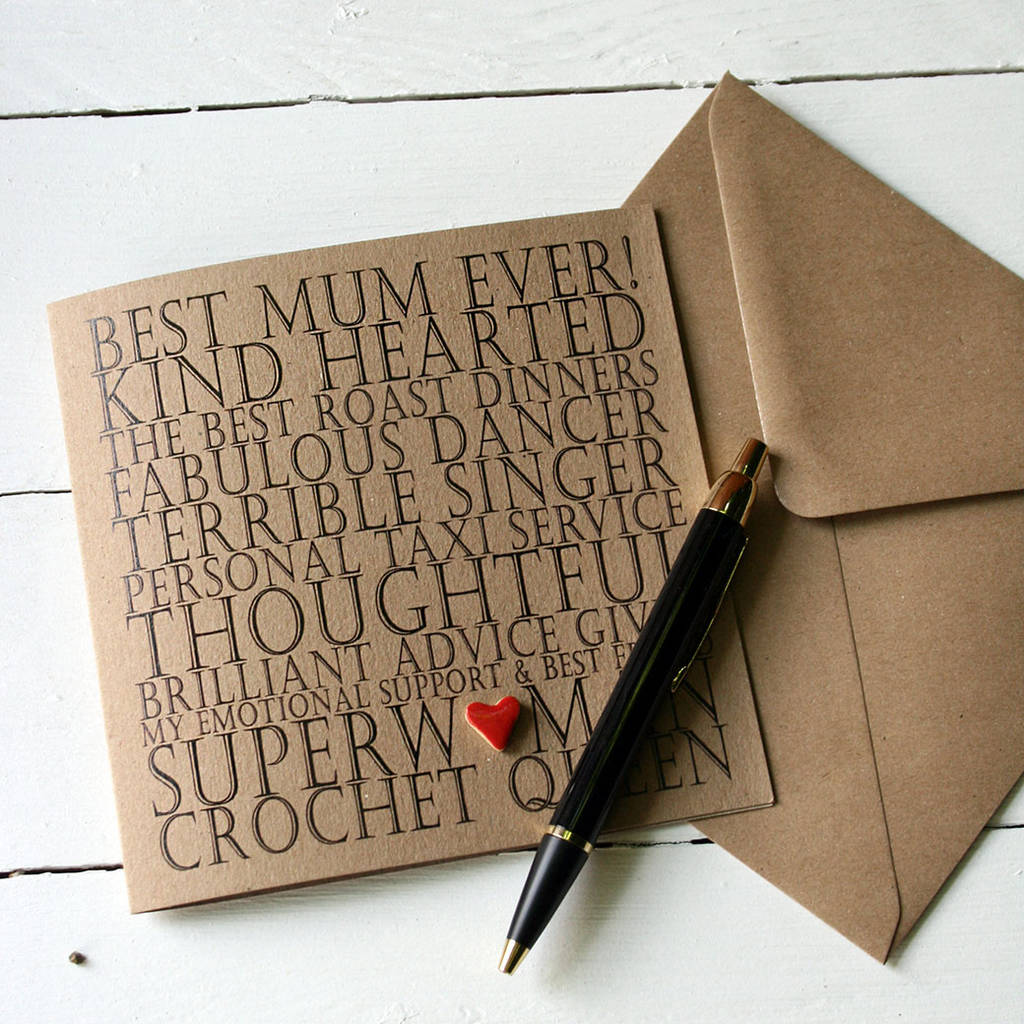 BEST MUM EVER!
KIND HEARTED
THE BEST ROAST DINNERS
FABULOUS DANCER
TERRIBLE SINGER
PERSONAL TAXI SERVICE
THOUGHTFUL
BRILLIANT ADVICE
MY EMOTIONAL SUPPORT & BEST
SUPERW MEN
CROCHET QUEEN